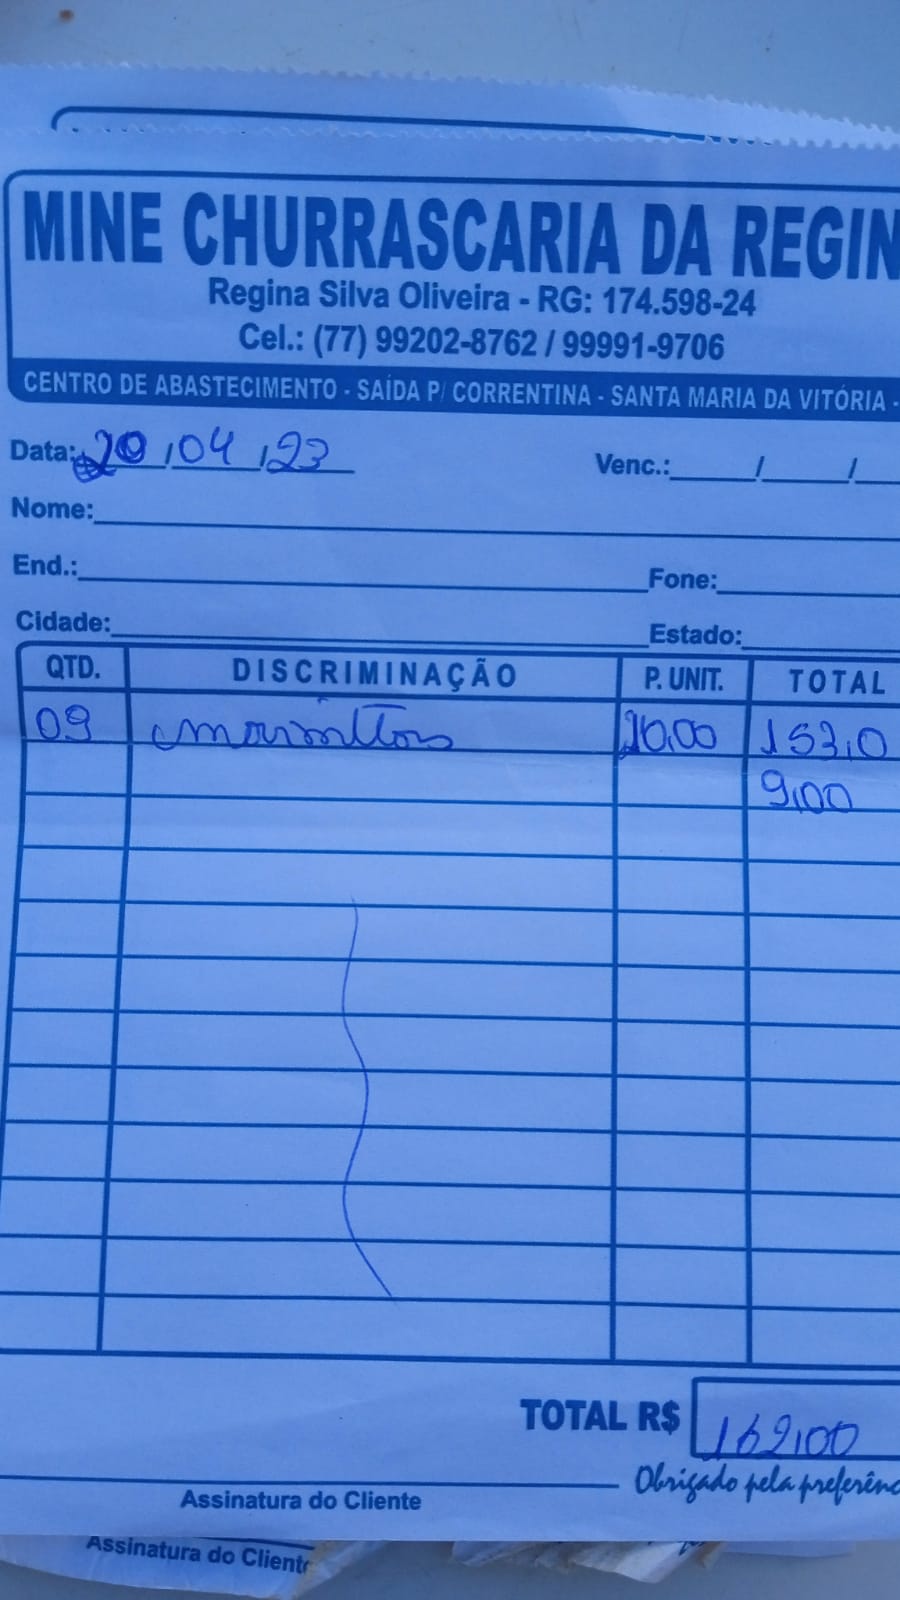 MINE CHURRASCARIA DA REGIN
Regina Silva Oliveira - RG: 174.598-24
Cel.: (77) 99202-8762 / 99991-9706
CENTRO DE ABASTECIMENTO - SAÍDA P/ CORRENTINA - SANTA MARIA DA VITÓRIA -
Data: 20/04/23 Venc.: / /
Nome:
End.: Fone:
Cidade: Estado:
QTD. DISCRIMINAÇÃO P. UNIT. TOTAL
09 marmittas 153,0
9,00
TOTAL R$ 162,00
Obrigado pela preferênc
Assinatura do Cliente
Assinatura do Cliente